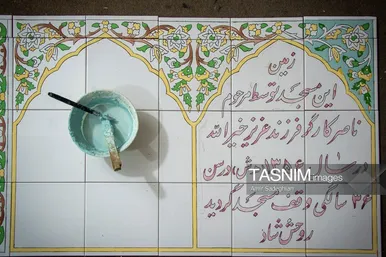 زمین
این مسجد توسط مرحوم
ناصر کارگر فرزند عزیز خیرالله
در سال ۱۳۵۶ ش در سن
۳۶ سالگی وقف مسجد گردید
روحش شاد
TASNIM images
Amir Sadeghian